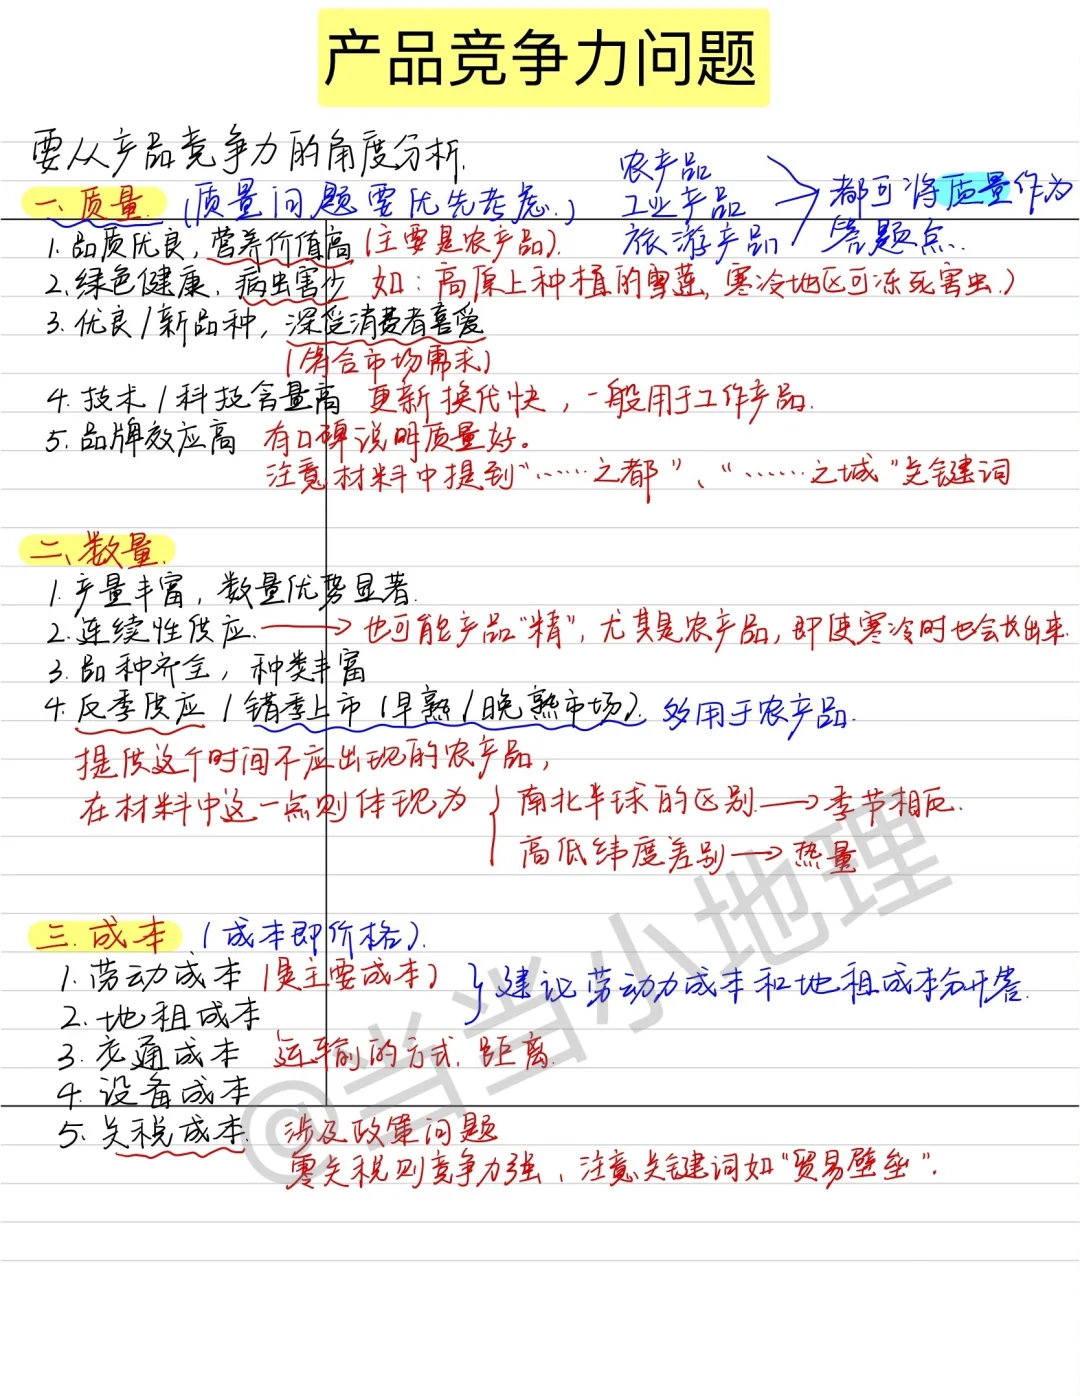 产品竞争力问题
要从产品竞争力的角度分析.
一.质量.(质量问题要优先考虑.)
农产品
工业产品
旅游产品
都可将质量作为
答题点.
1.品质优良,营养价值高(主要是农产品).
2.绿色健康.病虫害少 如:高原上种植的雪莲,寒冷地区可冻死害虫.)
3.优良/新品种,深受消费者喜爱
(符合市场需求)
4.技术/科技含量高 更新换代快,一般用于工作产品.
5.品牌效应高 有口碑说明质量好。
注意材料中提到“……之都”、“……之城”关键词
二、数量.
1.产量丰富,数量优势显著.
2.连续性供应.→也可能产品“精”,尤其是农产品,即使寒冷时也会长出来.
3.品种齐全,种类丰富
4.反季供应/错季上市(早熟/晚熟市场).多用于农产品.
提供这个时间不应出现的农产品,
在材料中这一点则体现为
南北半球的区别→季节相反.
高低纬度差别→热量
三.成本.(成本即价格).
1.劳动成本(是主要成本)
2.地租成本
建议劳动力成本和地租成本分开答.
3.交通成本 运输的方式.距离.
4.设备成本
5.关税成本. 涉及政策问题
零关税则竞争力强,注意关键词如“贸易壁垒”.
@当当小地理